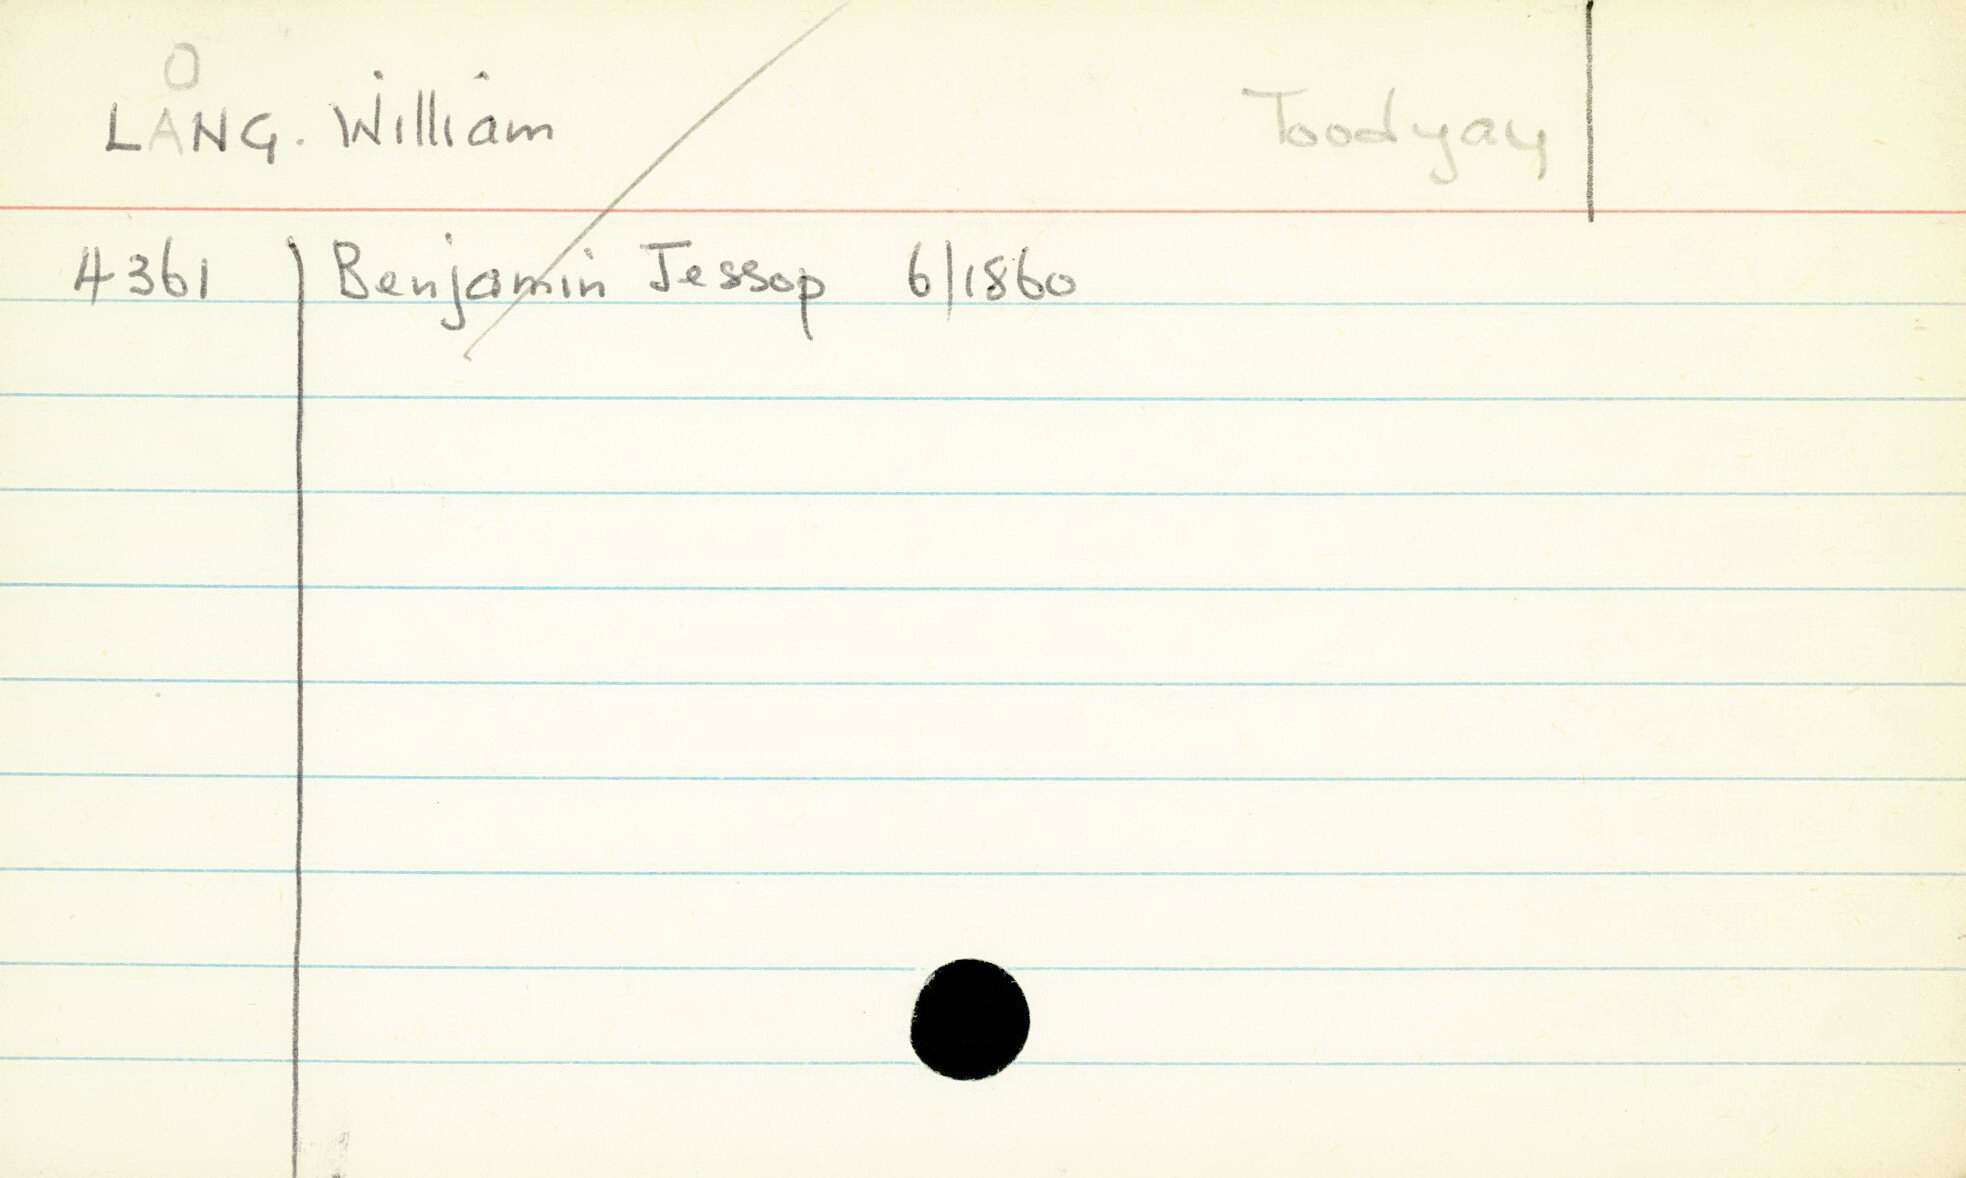 O
LANG. William Toodyay
4361 Benjamin Jessop 6/1860